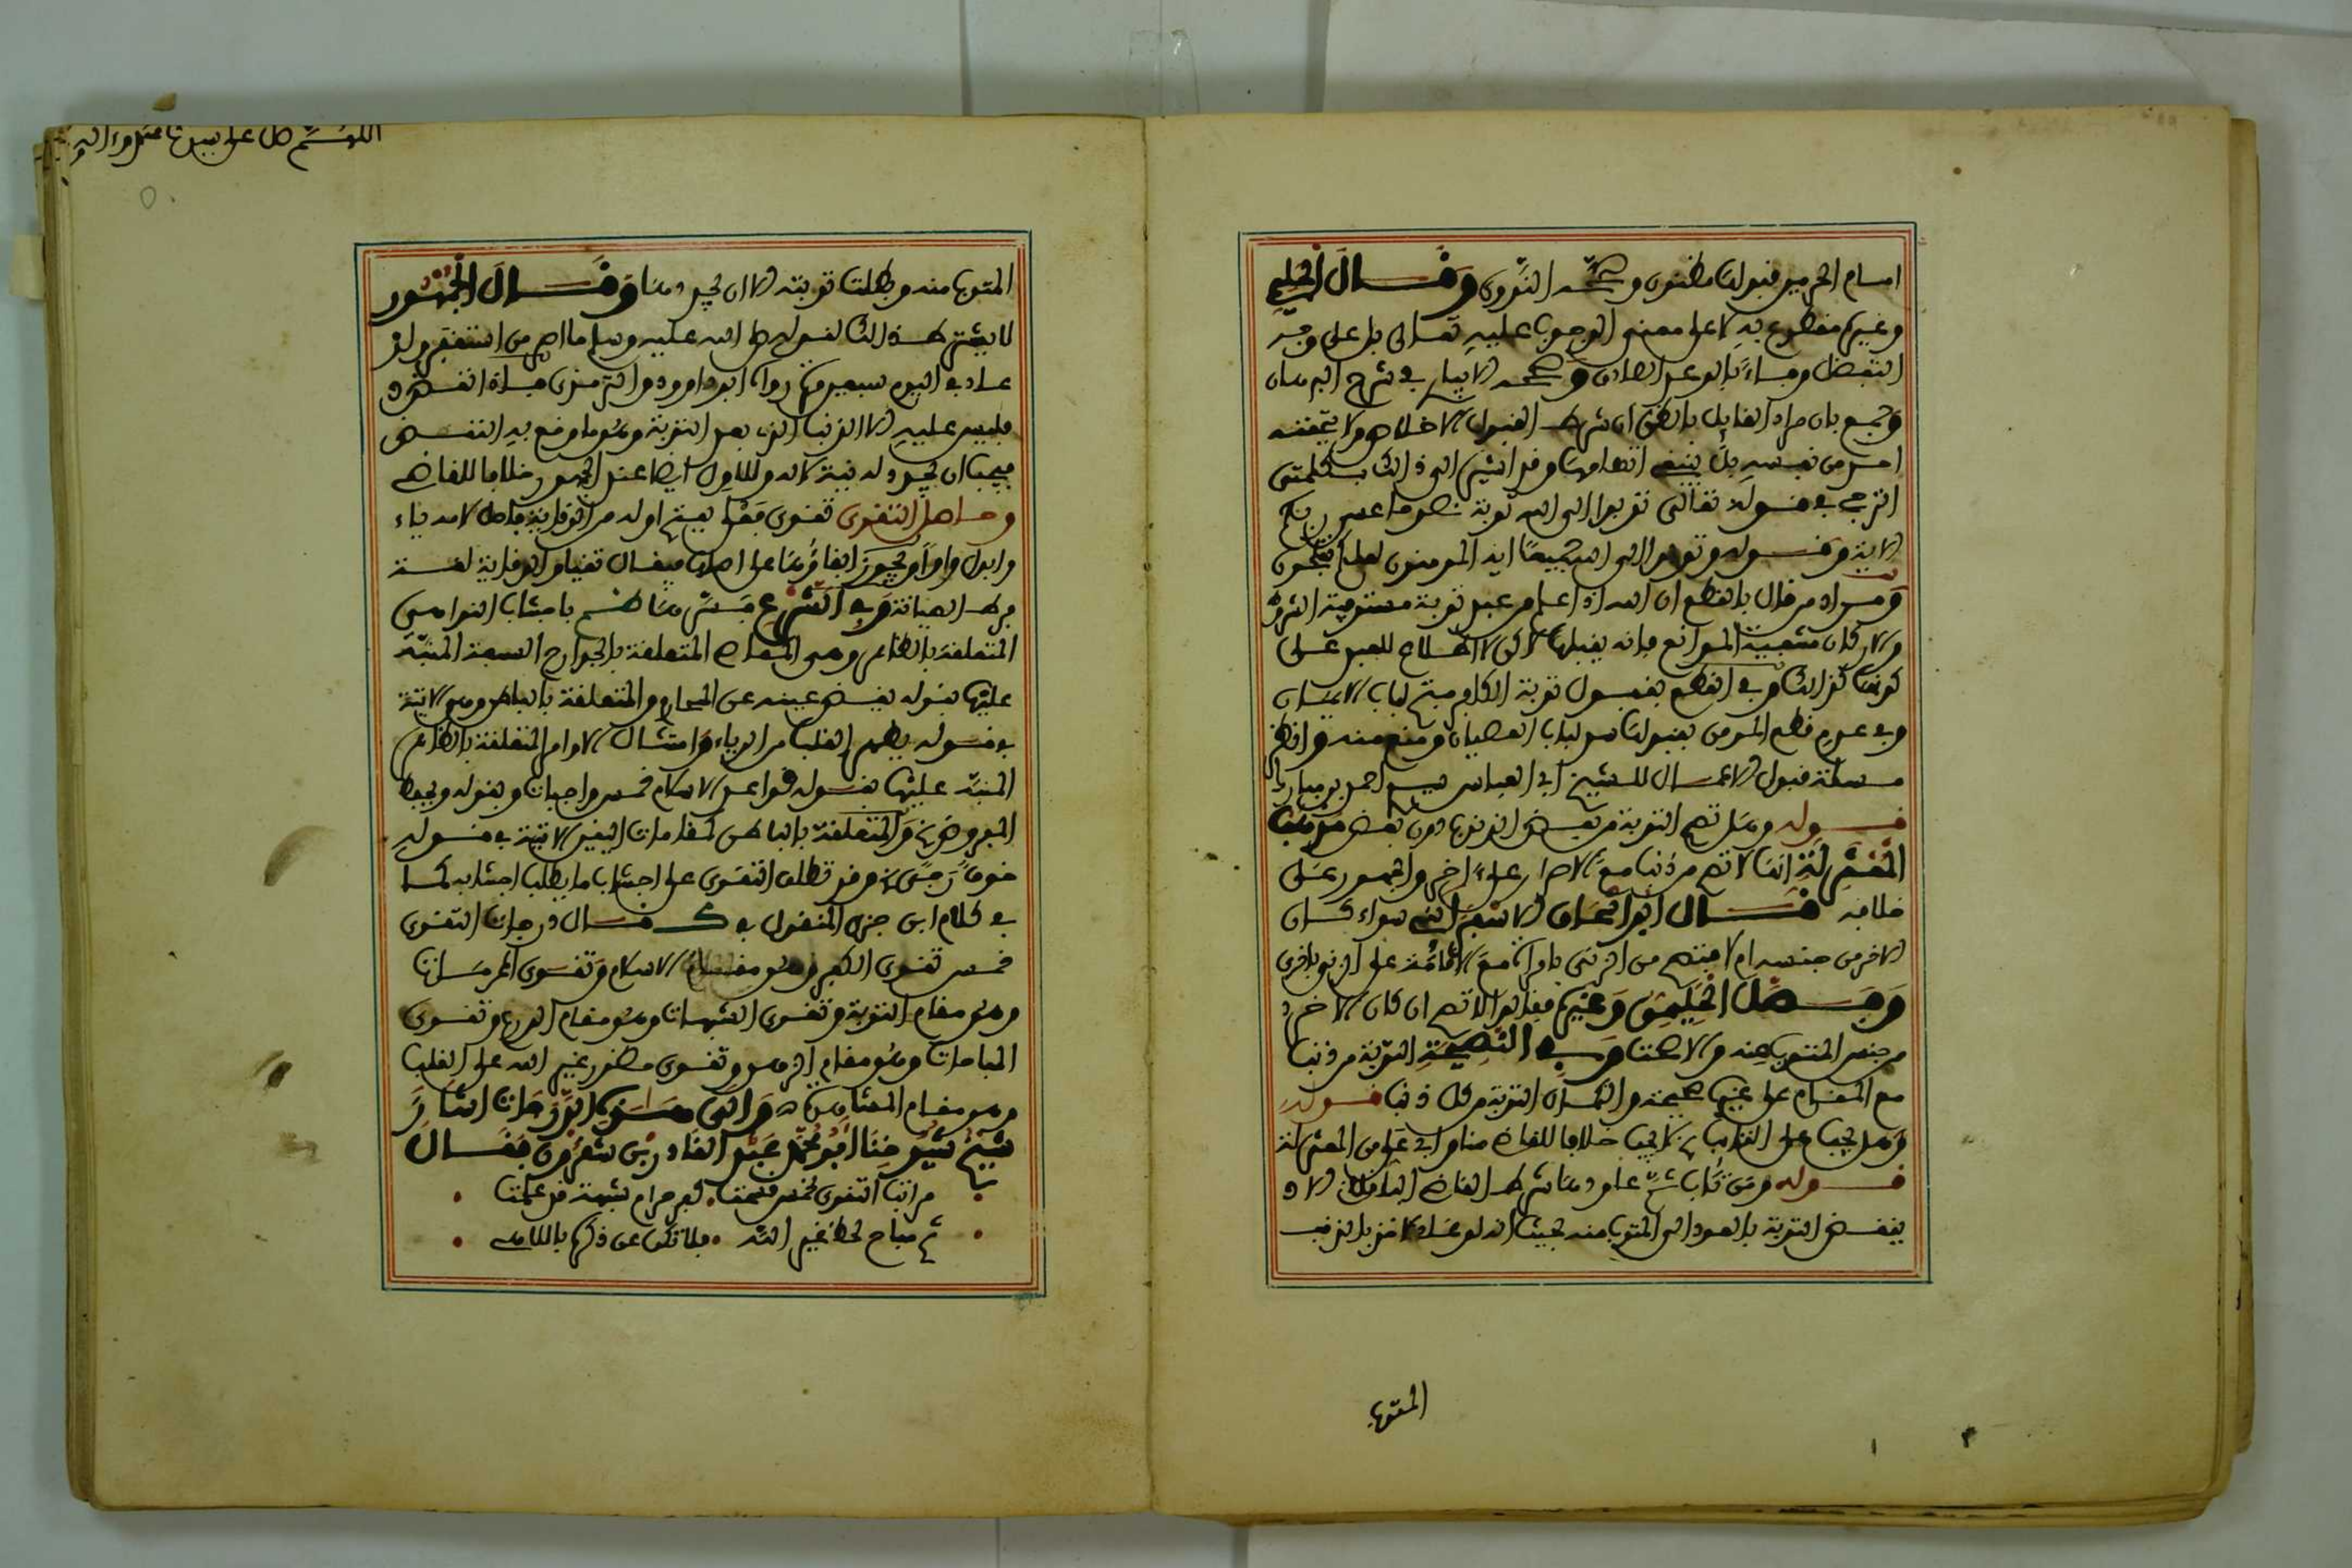 امام الحرمين قبولها مظنون وصححه النووي وقال الحليمي
وغيره مقطوع به لا على معنى الوجوب عليه تعالى بل على وجه
التفضل ووفاء بالوعد الصادق وصححه الابياري في شرح البرهان
وجمع بان مراد القايل بالظن ان شرط القبول الاخلاص ولا يتحققه
احد من نفسه بل ينبغي اتهامها وقد اشير الى ذلك بكلمتي
الترجي في قوله تعالى توبوا الى الله توبة نصوحا عسى ربكم
الاية وقوله وتوبوا الى الله جميعا ايه المومنون لعلكم تفلحون
ومراد من قال بالقطع ان الله اذا علم من عبد توبة مستوفية الشروط
والاركان منتفية الموانع فانه يقبلها لاكن لا اطلاع للعبد على
كونها كذلك وفي القطع بقبول توبة الكافر فتح لباب الايمان
وفي عدم قطع المومن بقبولها سد لباب العصيان ومنع منه وانظر
مسئلة قبول الاعمال للشيخ ابي العباس سيدي احمد بن مبارك
قوله وهل تصح التوبة من بعض الذنوب دون بعض مذهب
المعتزلة انها لا تصح من ذنب مع الاصرار على اخر والجمهور على
خلافه قال ابو اسحاق الاسفرايني سواء كان
الاخر من جنسه ام لا فتصح من الزنى بامراة مع الاقامة على الزنى باخرى
وفصل الحليمي وغيره فقالوا لا تصح ان كان الاخر
من جنس المتوب منه والا صحت وفي النصيحة التوبة من ذنب
مع المقام على غيره صحيحة والكمال التوبة من كل ذنب قوله
وهل يجب على القبول لا يجب خلافا للقاضي منا وابي علي من المعتزلة
قوله ومن تاب ثم عاود ما شرط القاضي الباقلاني الا
ينقض التوبة بالعود الى المتوب منه بحيث انه لو عاد لاخذ بالذنب
المتوب
اللهم صل على سيدنا محمد واله
المتوب منه وبطلت توبته الا ان يجددها وقال الجمهور
لا يشترط ذلك لقوله صلى الله عليه وسلم ما اصر من استغفر ولو
عاد في اليوم سبعين مرة رواه ابو داوود والترمذي فاذا انقضت
فليس عليه الا الذنب الذي بعد التوبة وهو ما وقع به النقض
فيجب ان يجدد له توبة لا له وللاول ايضا عند الجمهور خلافا للقاضي
واصل التقوى تقوى فعلى بفتح اوله من الوقاية فاصل لامه ياء
وابدل واوا ويجوز ابقاؤها على اصلها فيقال تقيا والوقاية لغة
فرط الصيانة وفي الشرع فسرها ناظم باجتناب النواهي
المتعلقة بالظاهر وهي المعاصي المتعلقة بالجوارح السبعة المنبه
عليها بقوله يغض عينه عن المحارم والمتعلقة بالباطن وهي الاتية
في قوله يطهر القلب من الرياء وامتثال الاوامر المتعلقة بالظاهر
المنبه عليها بقوله قواعد الاسلام خمس واجبات وبقوله ويحفظ
المفروض والمتعلقة بالباطن كمقامات اليقين الاتية في قوله
خوف رجا وقد تطلق التقوى على اجتناب ما يطلب اجتنابه كما
في كلام ابن جزي المنقول في ك قال درجات التقوى
خمس تقوى الكفر وهو مقام الاسلام وتقوى المحرمات
وهو مقام التوبة وتقوى الشبهات وهو مقام الورع وتقوى
المباحات وهو مقام الزهد وتقوى حضور غير الله على القلب
وهو مقام المشاهدة والى هذه الدرجات اشار
شيخ شيوخنا ابو محمد عبد القادر بن شقرون فقال
مراتب التقوى لخمس قسمت كفر حرام شبهة قد علمت
ثم مباح لحظ غير الله فلا تكن عن ذكره باللاهي